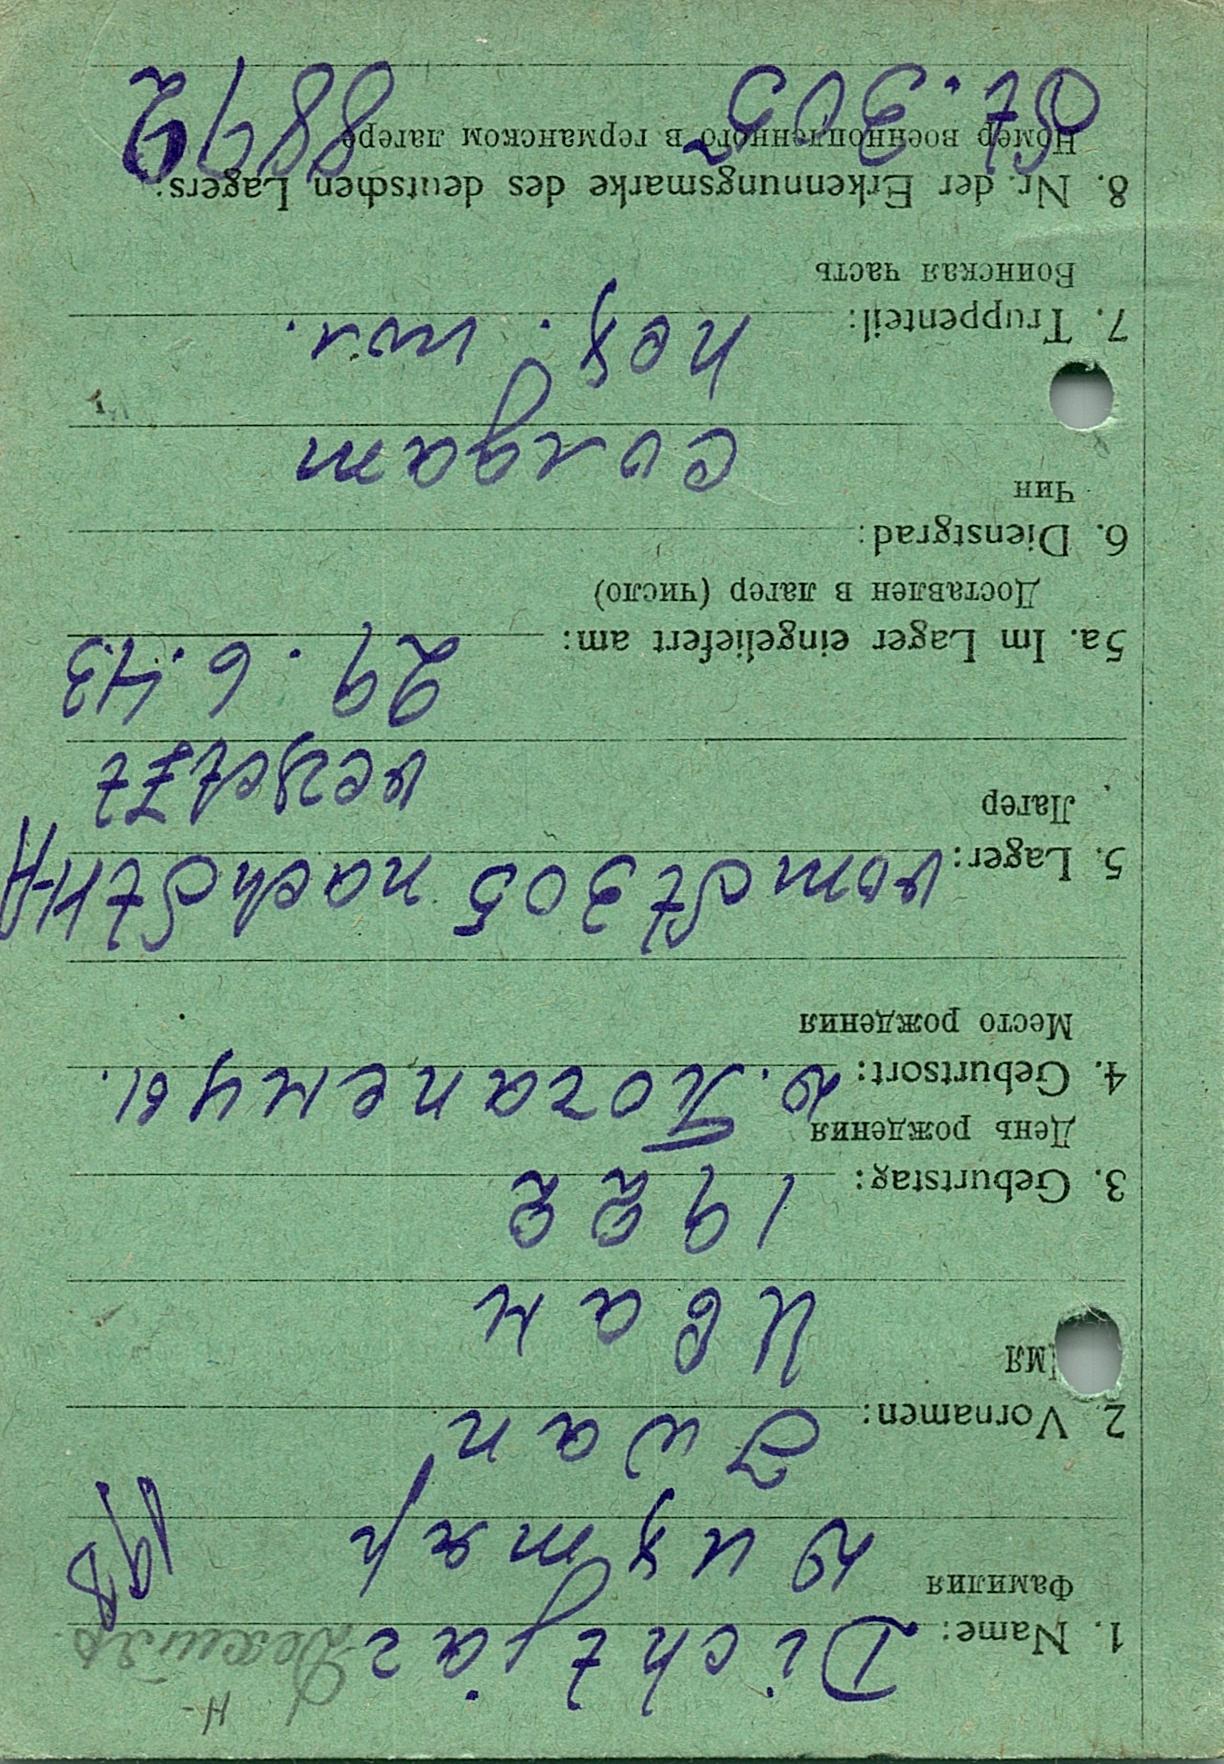 1. Name: Dichtjar
Фамилия
Дихтярь
19B
2. Vornamen: Iwan
Имя
Иван
3. Geburtstag: 1922
День рождения
4. Geburtsort:
Место рождения
5. Lager: vom St 305 nach St IV-A
Лагер
versetzt
5a. Im Lager eingeliefert am: 29.6.43
Доставлен в лагер (число)
6. Dienstgrad:
Чин
солдат
7. Truppenteil: пех. пол.
Воинская часть
8. Nr. der Erkennungsmarke des deutschen Lagers:
Номер военнопленного в германском лагере
St. 305